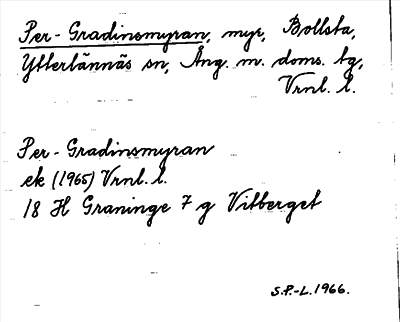 Per-Gradinsmyran, myr, Bollsta,
Ytterlännäs sn, Ång. m. doms. tg,
Vrnl. l.
Per-Gradinsmyran
ek (1965) Vrnl. l.
18 H Graninge 7 g Vitberget
S.P.-L. 1966.